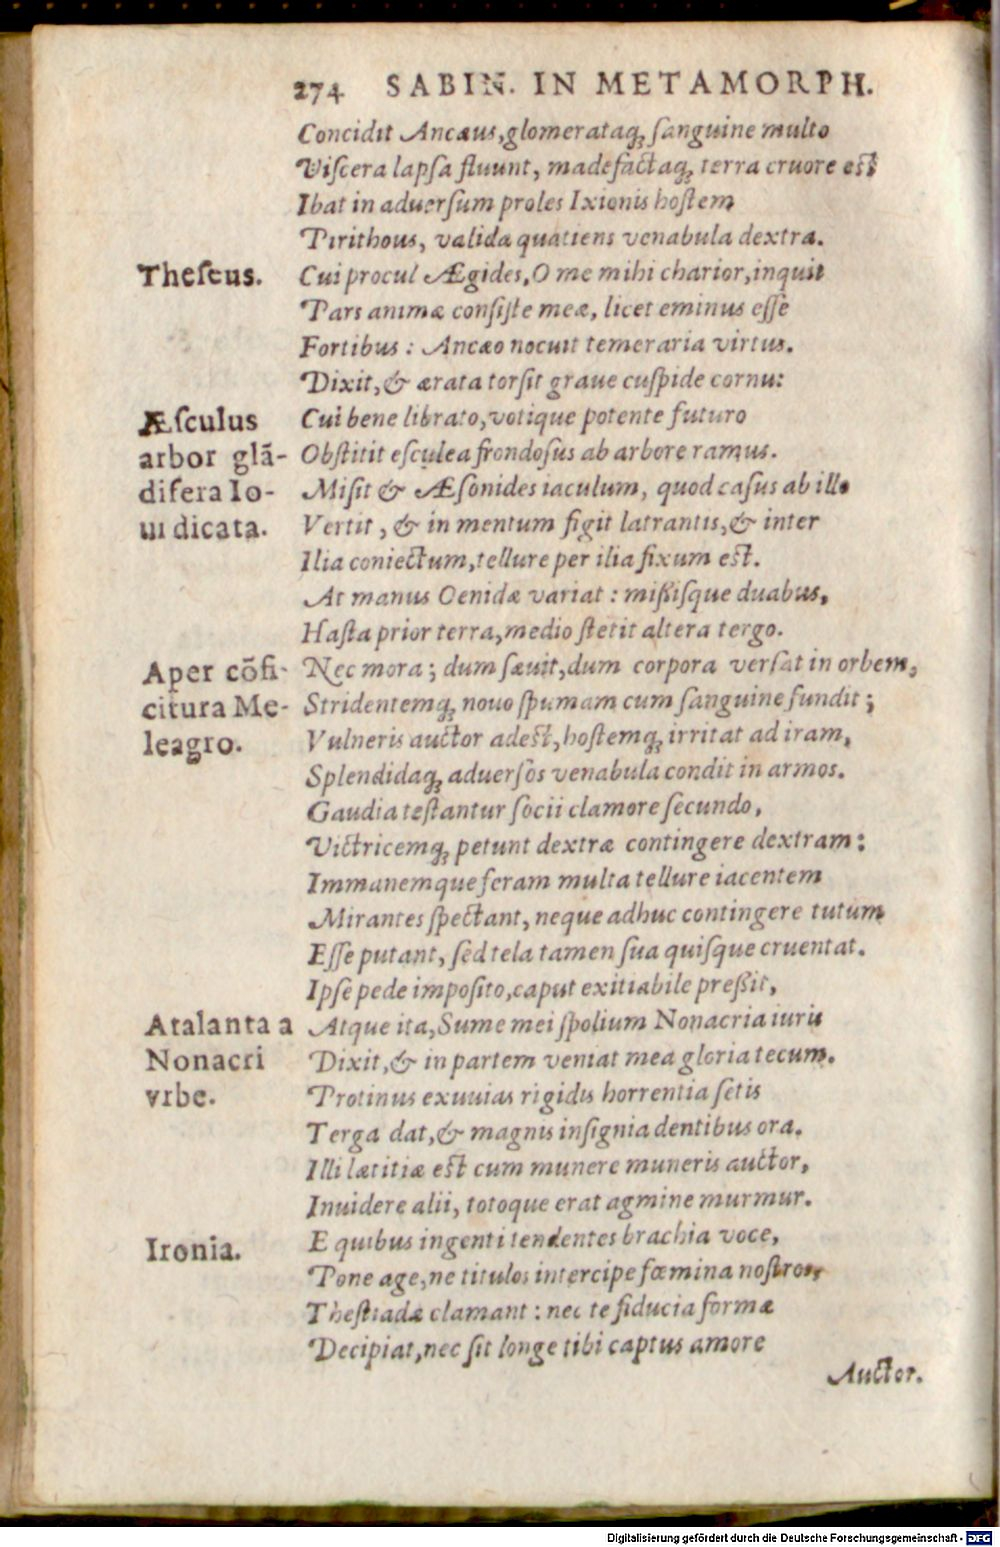 274 SABIN. IN METAMORPH.
Concidit Ancæus, glomerataq; ſanguine multo
Viſcera lapſa fluunt, madefactaq; terra cruore eſt
Ibat in aduerſum proles Ixionis hoſtem
Pirithous, valida quatiens venabula dextra.
Theſeus.
Cui procul Ægides, O me mihi charior, inquit
Pars animæ conſiſte meæ, licet eminus eſſe
Fortibus: Ancæo nocuit temeraria virtus.
Dixit, & ærata torſit graue cuſpide cornu:
Æſculus
arbor glā-
difera Io-
ui dicata.
Cui bene librato, votique potente futuro
Obſtitit eſculea frondoſus ab arbore ramus.
Miſit & Æſonides iaculum, quod caſus ab illo
Vertit, & in mentum figit latrantis, & inter
Ilia coniectum, tellure per ilia fixum eſt.
At manus Oenidæ variat: miſſiſque duabus,
Haſta prior terra, medio ſtetit altera tergo.
Aper cōfi-
citura Me-
leagro.
Nec mora; dum ſæuit, dum corpora verſat in orbem,
Stridentemq; nouo ſpumam cum ſanguine fundit;
Vulneris auctor adeſt, hoſtemq; irritat ad iram,
Splendidaq; aduerſos venabula condit in armos.
Gaudia teſtantur ſocii clamore ſecundo,
Victricemq; petunt dextræ contingere dextram:
Immanemque feram multa tellure iacentem
Mirantes ſpectant, neque adhuc contingere tutum
Eſſe putant, ſed tela tamen ſua quiſque cruentat.
Ipſe pede impoſito, caput exitiabile preſſit,
Atalanta a
Nonacri
vrbe.
Atque ita, Sume mei ſpolium Nonacria iuris
Dixit, & in partem veniat mea gloria tecum.
Protinus exuuias rigidis horrentia ſetis
Terga dat, & magnis inſignia dentibus ora.
Illi lætitiæ eſt cum munere muneris auctor,
Inuidere alii, totoque erat agmine murmur.
Ironia.
E quibus ingenti tendentes brachia voce,
Pone age, ne titulos intercipe fœmina noſtros,
Theſtiadæ clamant: nec te fiducia formæ
Decipiat, nec ſit longe tibi captus amore
Auctor.
Digitalisierung gefördert durch die Deutsche Forschungsgemeinschaft - DFG